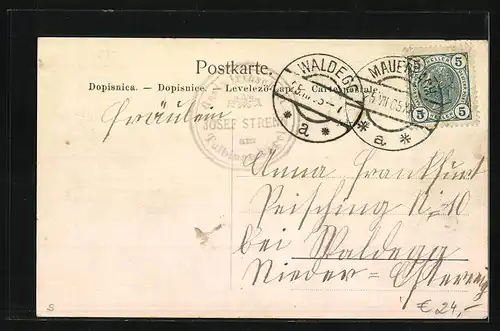 Postkarte.
Dopisnica. — Dopisnice. — Levelező-Lap. — Carte postale.
WALDEGG
a
MAUER
a
5 5
5 5
JOSEF
am
Fräulein
Anna Frankfurt
Peisching No 10
bei Waldegg
Nieder=Österreich
S
€ 24,-